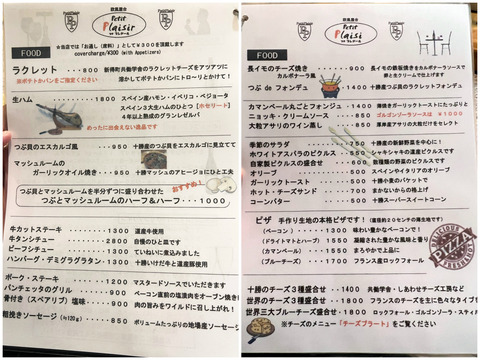 欧風屋台
Petit
Plaisir
☆当店では「お通し（席料）」として¥300を頂戴します
covercharge/¥300 (with Appetizers)
FOOD
ラクレット ・・・ 800
新得町共働学舎のラクレットチーズをアツアツに
溶かしてポテトかパンにトローリとかけて！
生ハム ・・・ 1800
スペイン産ハモン・イベリコ・ベジョータ
スペイン3大生ハムのひとつ【ホセリート】
4年以上熟成のグランレゼルバ
めったに出会えない逸品です
つぶ貝のエスカルゴ風 ・・・ 950
十勝産つぶ貝をエスカルゴに見立てて
マッシュルームの
ガーリックオイル焼き ・・・ 950
十勝マッシュのアヒージョにひと工夫
おすすめ！
つぶ貝とマッシュルームを半分ずつに盛り合わせた
つぶとマッシュルームのハーフ＆ハーフ ・・・ 1000
牛カットステーキ ・・・ 1300
道産牛使用
牛タンシチュー ・・・ 2800
自慢のひと皿です
ビーフシチュー ・・・ 1300
ていねいに煮込みました
ハンバーグ・デミグラグラタン ・・・ 1300
十勝いけだ牛と道産豚使用
ポーク・ステーキ ・・・ 1200
マスタードソースでいただきます
パンチェッタのグリル ・・・ 900
ベーコン直前の塩漬肉をオーブン焼き
骨付き（スペアリブ）塩味 ・・・ 900
肉の旨みをワイルドに召し上がれ！
粗挽きソーセージ（約120g） ・・・ 850
ボリュームたっぷりの地場産ソーセージ
欧風屋台
Petit
Plaisir
FOOD
長イモのチーズ焼き ・・・ 900
カルボナーラ風
長イモの鉄板焼きをカルボナーラソースで
卵と生クリームで仕上げます
つぶ de フォンデュ ・・・ 1400
十勝産つぶ貝のラクレットフォンデュ
カマンベール丸ごとフォンジュ ・・・ 1400
ニョッキ・クリームソース ・・・ 850
ゴルゴンゾーラソースは
大粒アサリのワイン蒸し ・・・ 850
厚岸産アサリの大粒だけをセレクト
季節のサラダ ・・・ 750
十勝産の新鮮野菜を中心に！
ホワイトアスパラのピクルス
シャキシャキの道産ピクルスです
自家製ピクルスの盛合せ
オリーブ
スペインやイタリアのオリーブ
ガーリックトースト
十勝小麦のバケットで
ホット・チーズサンド
まかないからの格上げ
コーンバター
十勝スーパースイートコーン
ピザ 手作り生地の本格ピザです！（直径約20センチの薄生地です）
（ベーコン） ・・・ 1300
味わい豊かなベーコンで！
（ドライトマトとハーブ） ・・・ 1550
凝縮された豊かな風味と香り
（カマンベール） ・・・ 1550
まろやかで上品に
（ブルーチーズ） ・・・ 1700
フランス産ロックフォール
DELICIOUS
PIZZA
十勝のチーズ3種盛合せ ・・・ 1400
共働学舎、しあわせチーズ工房など
世界のチーズ3種盛合せ ・・・ 1800
フランスのチーズを主に色々なタイプ
世界三大ブルーチーズ盛合せ ・・・ 1800
ロックフォール・ゴルゴンゾーラ・スティ
※チーズのメニュー「チーズプラート」をご覧ください